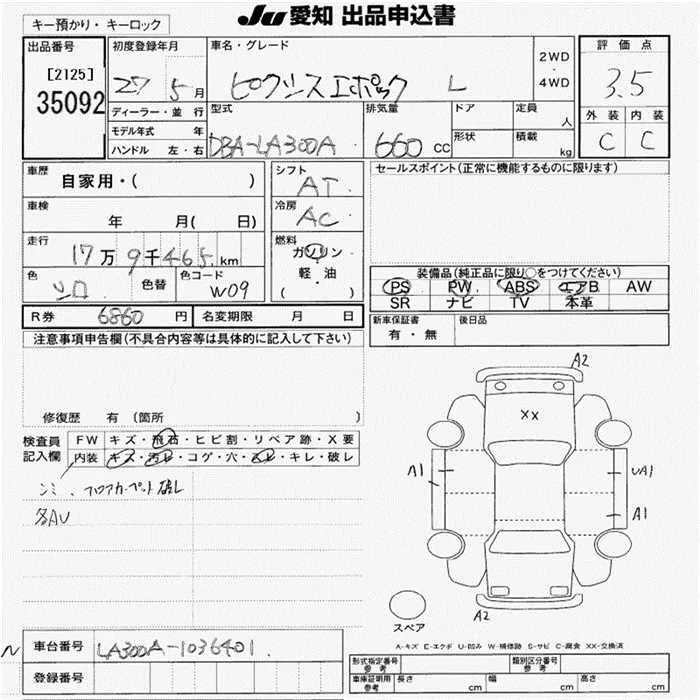 JU愛知 出品申込書
キー預かり・キーロック
出品番号
[2125]
35092
初度登録年月
27 5月
ディーラー・並行
モデル年式 年
ハンドル 左・右
車名・グレード
ピクシスエポック L
2WD
4WD
型式
DBA-LA300A
排気量
660 CC
ドア
形状
定員 人
積載 kg
評価点
3.5
外装 内装
C C
車歴
自家用・( )
車検
年 月( 日)
走行
17万9千465km
色
シロ
色替
色コード
W09
シフト
AT
冷房
AC
燃料
ガソリン
軽・油
( )
セールスポイント(正常に機能するものに限ります)
装備品(純正品に限り○をつけてください)
PS PW ABS エアB AW
SR ナビ TV 本革
R券 6860円 名変期限 月 日
新車保証書
有・無
後日品
注意事項申告欄(不具合内容等は具体的に記入して下さい)
修復歴 有 〔箇所 〕
検査員
記入欄
FW キズ・飛石・ヒビ割・リペア跡・X要
内装 キズ・汚レ・コゲ・穴・スレ・キレ・破レ
シミ、フロアカーペット破レ
各AU
A2
XX
A1
UA1
A1
A2
スペア
A-キズ E-エクボ U-凹み W-補修跡 S-サビ C-腐食 XX-交換済
N
車台番号 LA300A-1036401
登録番号
形式指定番号
参考
類別区分番号
参考
車庫証明用
参考
長さ cm 幅 cm 高さ cm